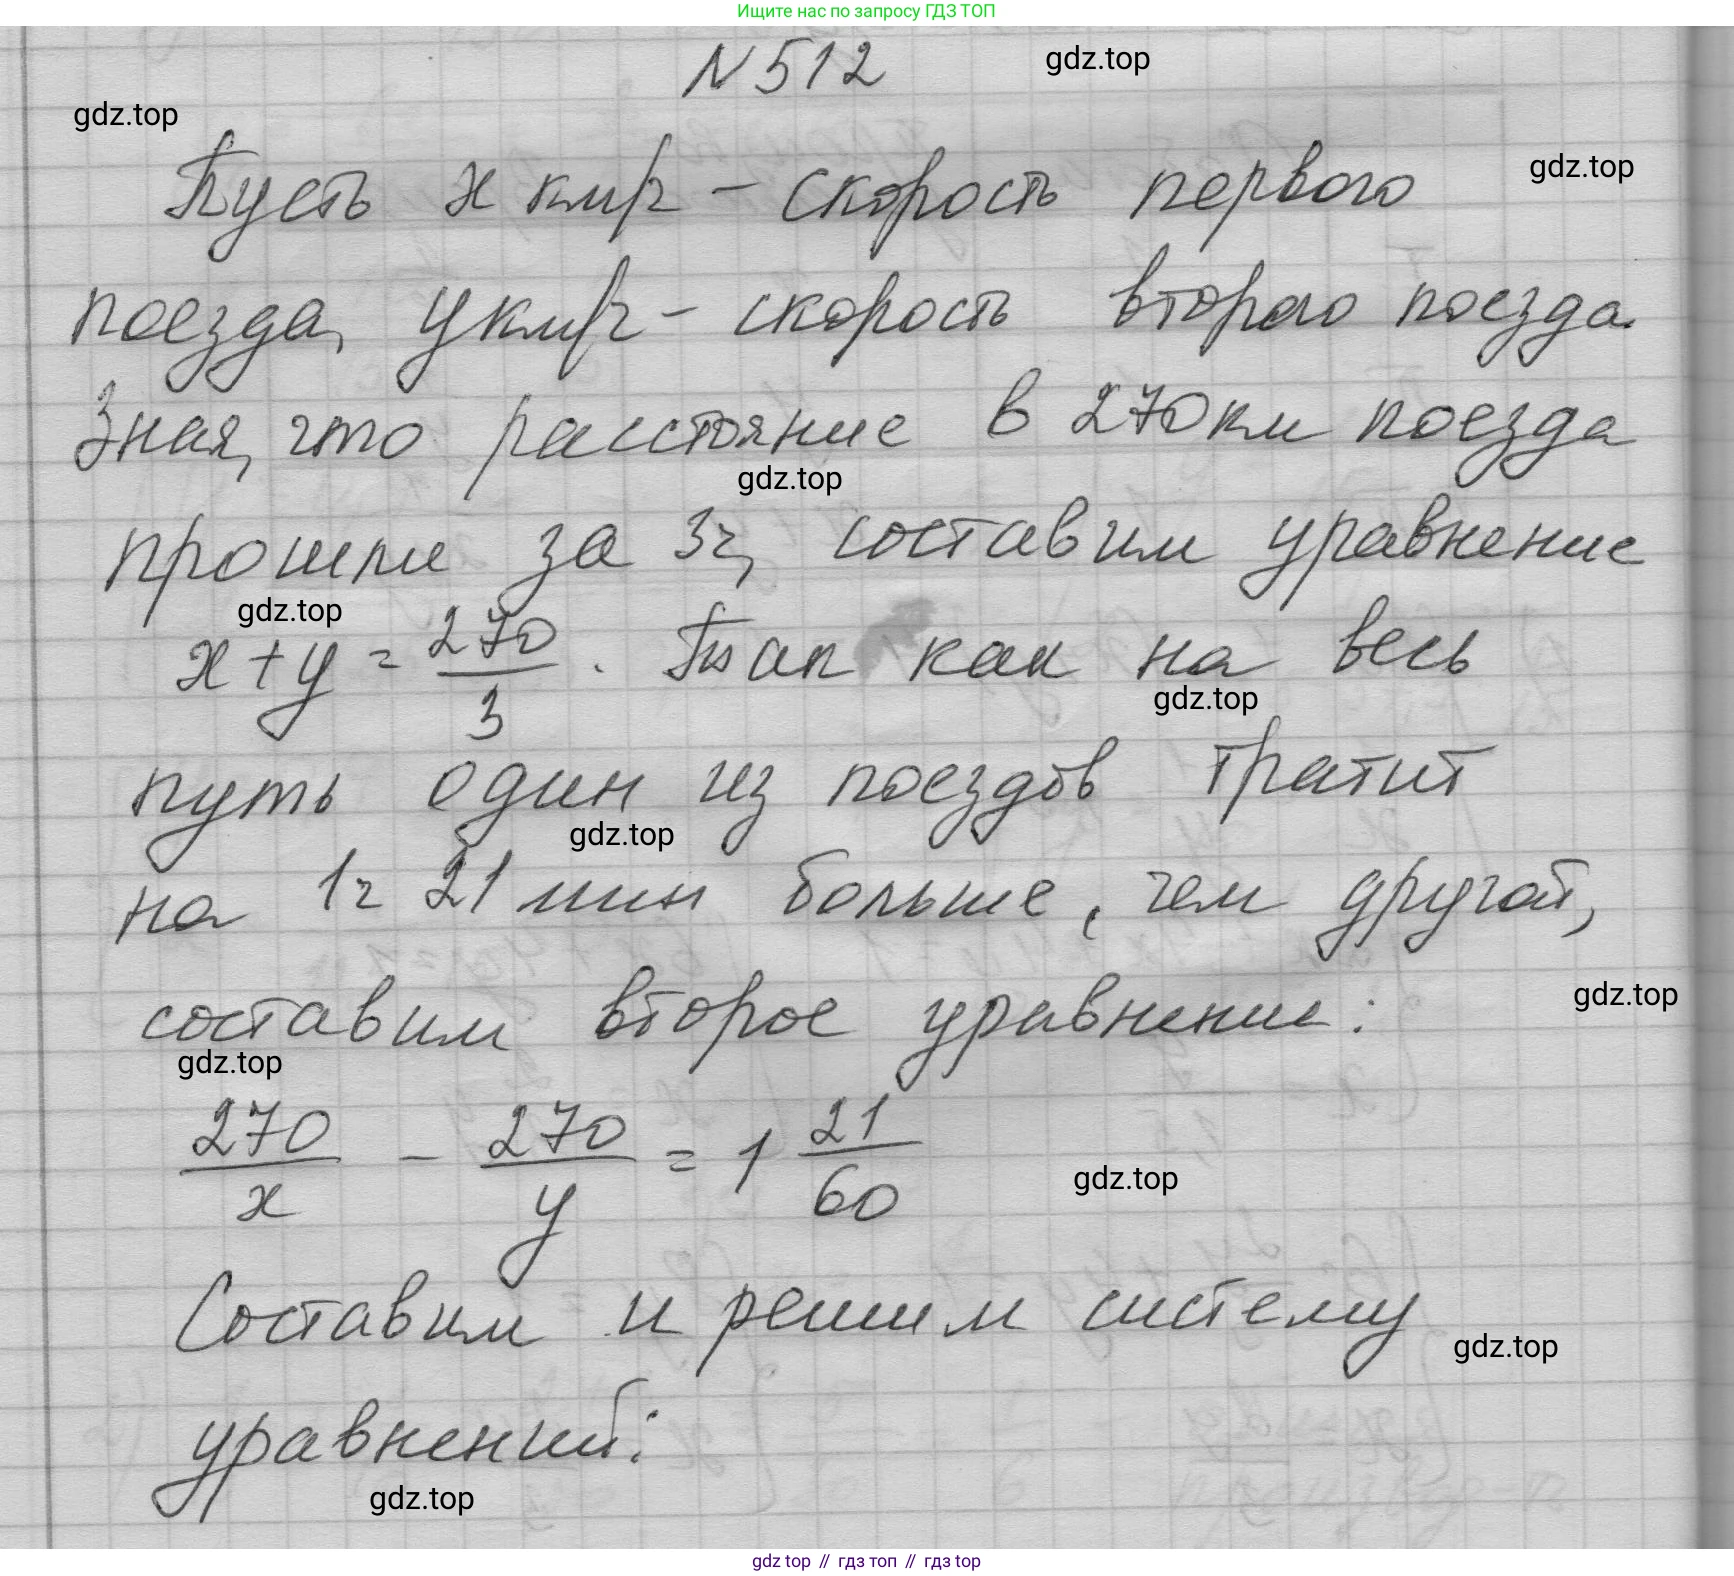 Ищите нас по запросу ГДЗ ТОП
N 512
gdz.top
gdz.top
Пусть x км/ч - скорость первого
gdz.top
поезда, y км/ч - скорость второго поезда.
Зная, что расстояние в 270 км поезда
gdz.top
прошли за 3ч, составим уравнение
gdz.top
x + y = \frac{270}{3}. Так как на весь
gdz.top
путь один из поездов тратит
gdz.top
на 1ч 21 мин больше, чем другой,
gdz.top
составим второе уравнение:
gdz.top
\frac{270}{x} - \frac{270}{y} = 1 \frac{21}{60}
gdz.top
Составим и решим систему
gdz.top
уравнений:
gdz.top
gdz top // гдз топ // гдз top